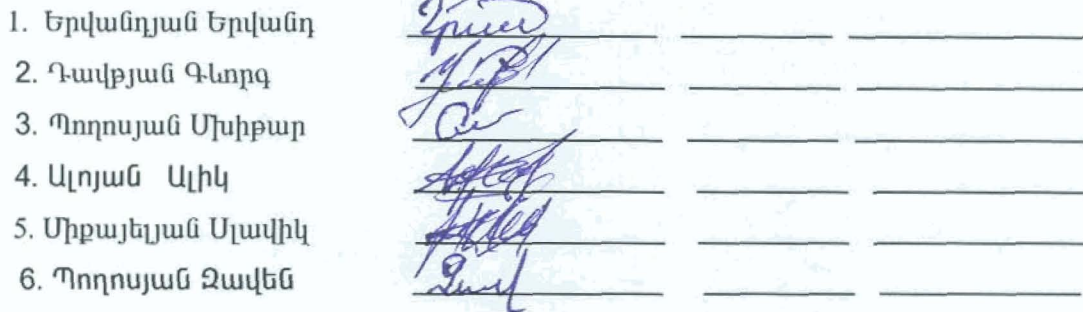 1. Երվանդյան Երվանդ
2. Դավթյան Գևորգ
3. Պողոսյան Մխիթար
4. Ալոյան Ալիկ
5. Միքայելյան Սլավիկ
6. Պողոսյան Զավեն